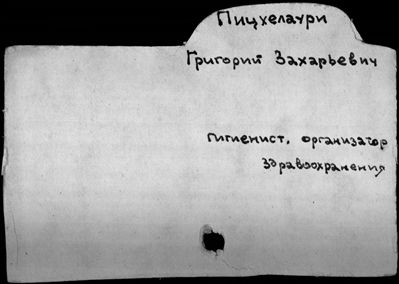 Пицхелаури
Григорий Захарьевич
гигиенист, организатор
здравоохранения